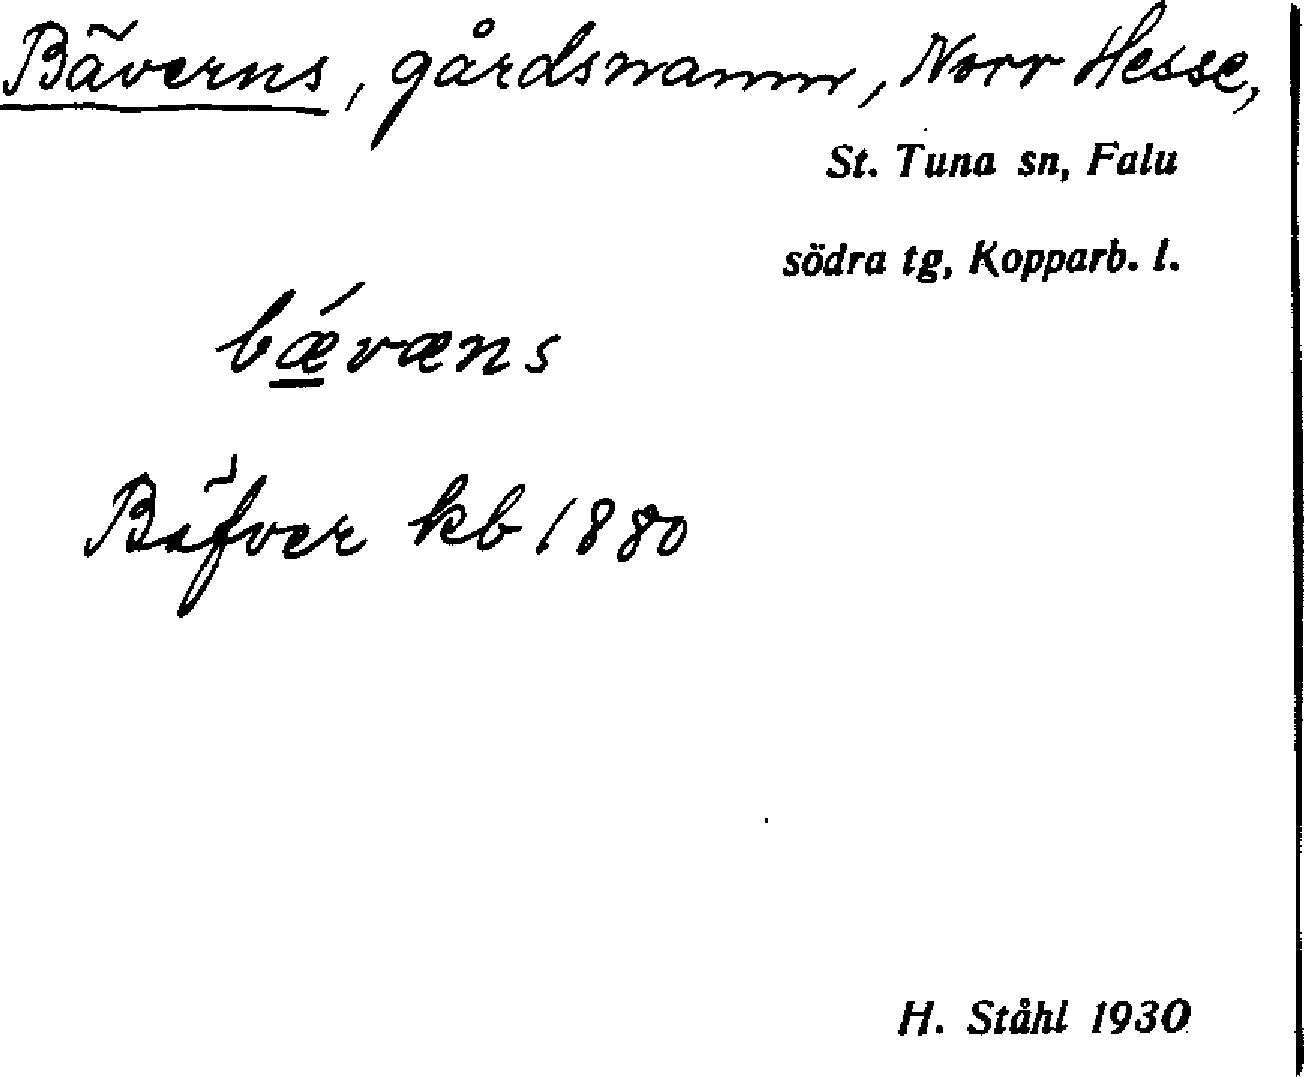 Bäverns, gårdsnamn, Norr Hesse,
St. Tuna sn, Falu
södra tg, Kopparb. l.
bǽvæns
Bäfver kb 1880
H. Ståhl 1930